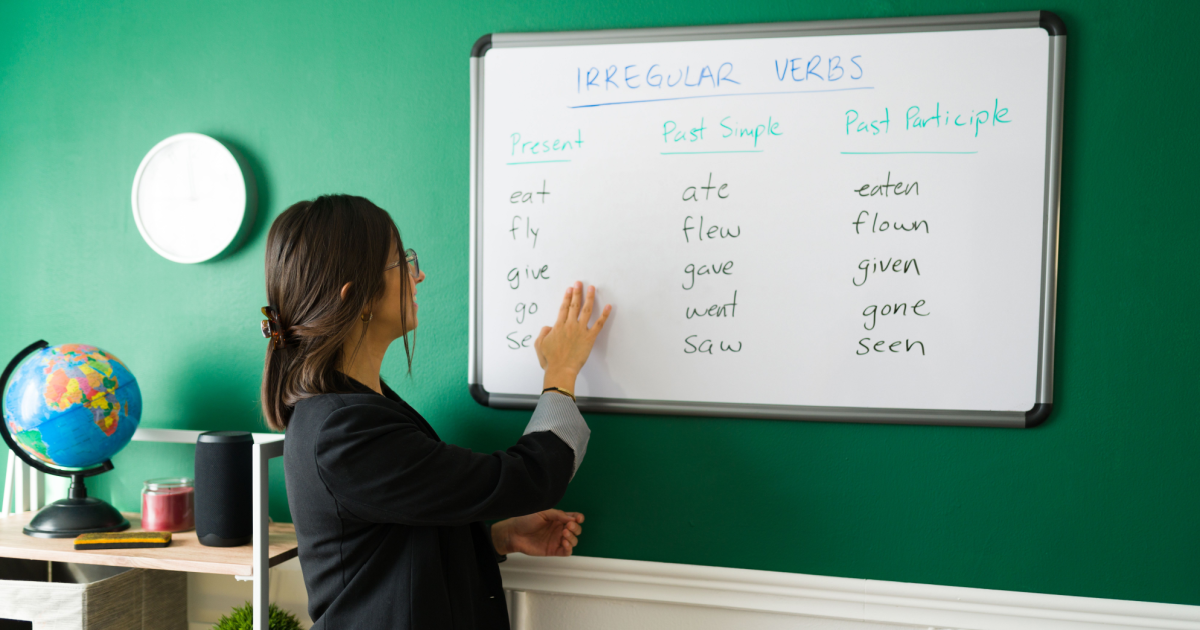 IRREGULAR VERBS
Present Past Simple Past Participle
eat ate eaten
fly flew flown
give gave given
go went gone
saw seen